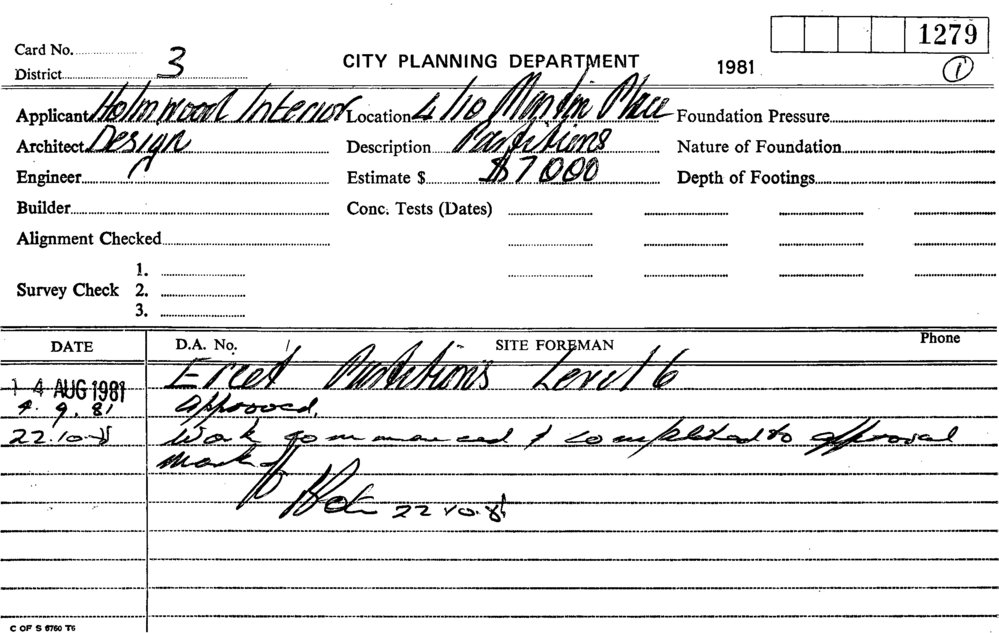 1279
Card No. 3 CITY PLANNING DEPARTMENT 1981 1
District
Applicant Holmwood Interior Location 4/10 Martin Place Foundation Pressure
Architect Design Description Partitions Nature of Foundation
Engineer Estimate $ $7000 Depth of Footings
Builder Conc. Tests (Dates)
Alignment Checked
1.
Survey Check 2.
3.
DATE D.A. No. SITE FOREMAN Phone
14 AUG 1981 Erect Partitions Level 6
4.9.81 Approved.
22.10.81 Work commenced & completed to approval
22.10.81
C OF S 6760 T6